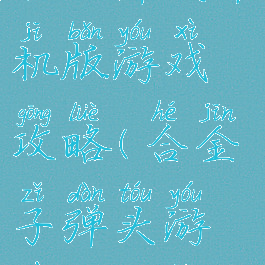 jī bǎn yóu xì
机版游戏
gōng lüè hé jīn
攻略(合金
zǐ dàn tóu yóu
子弹头游